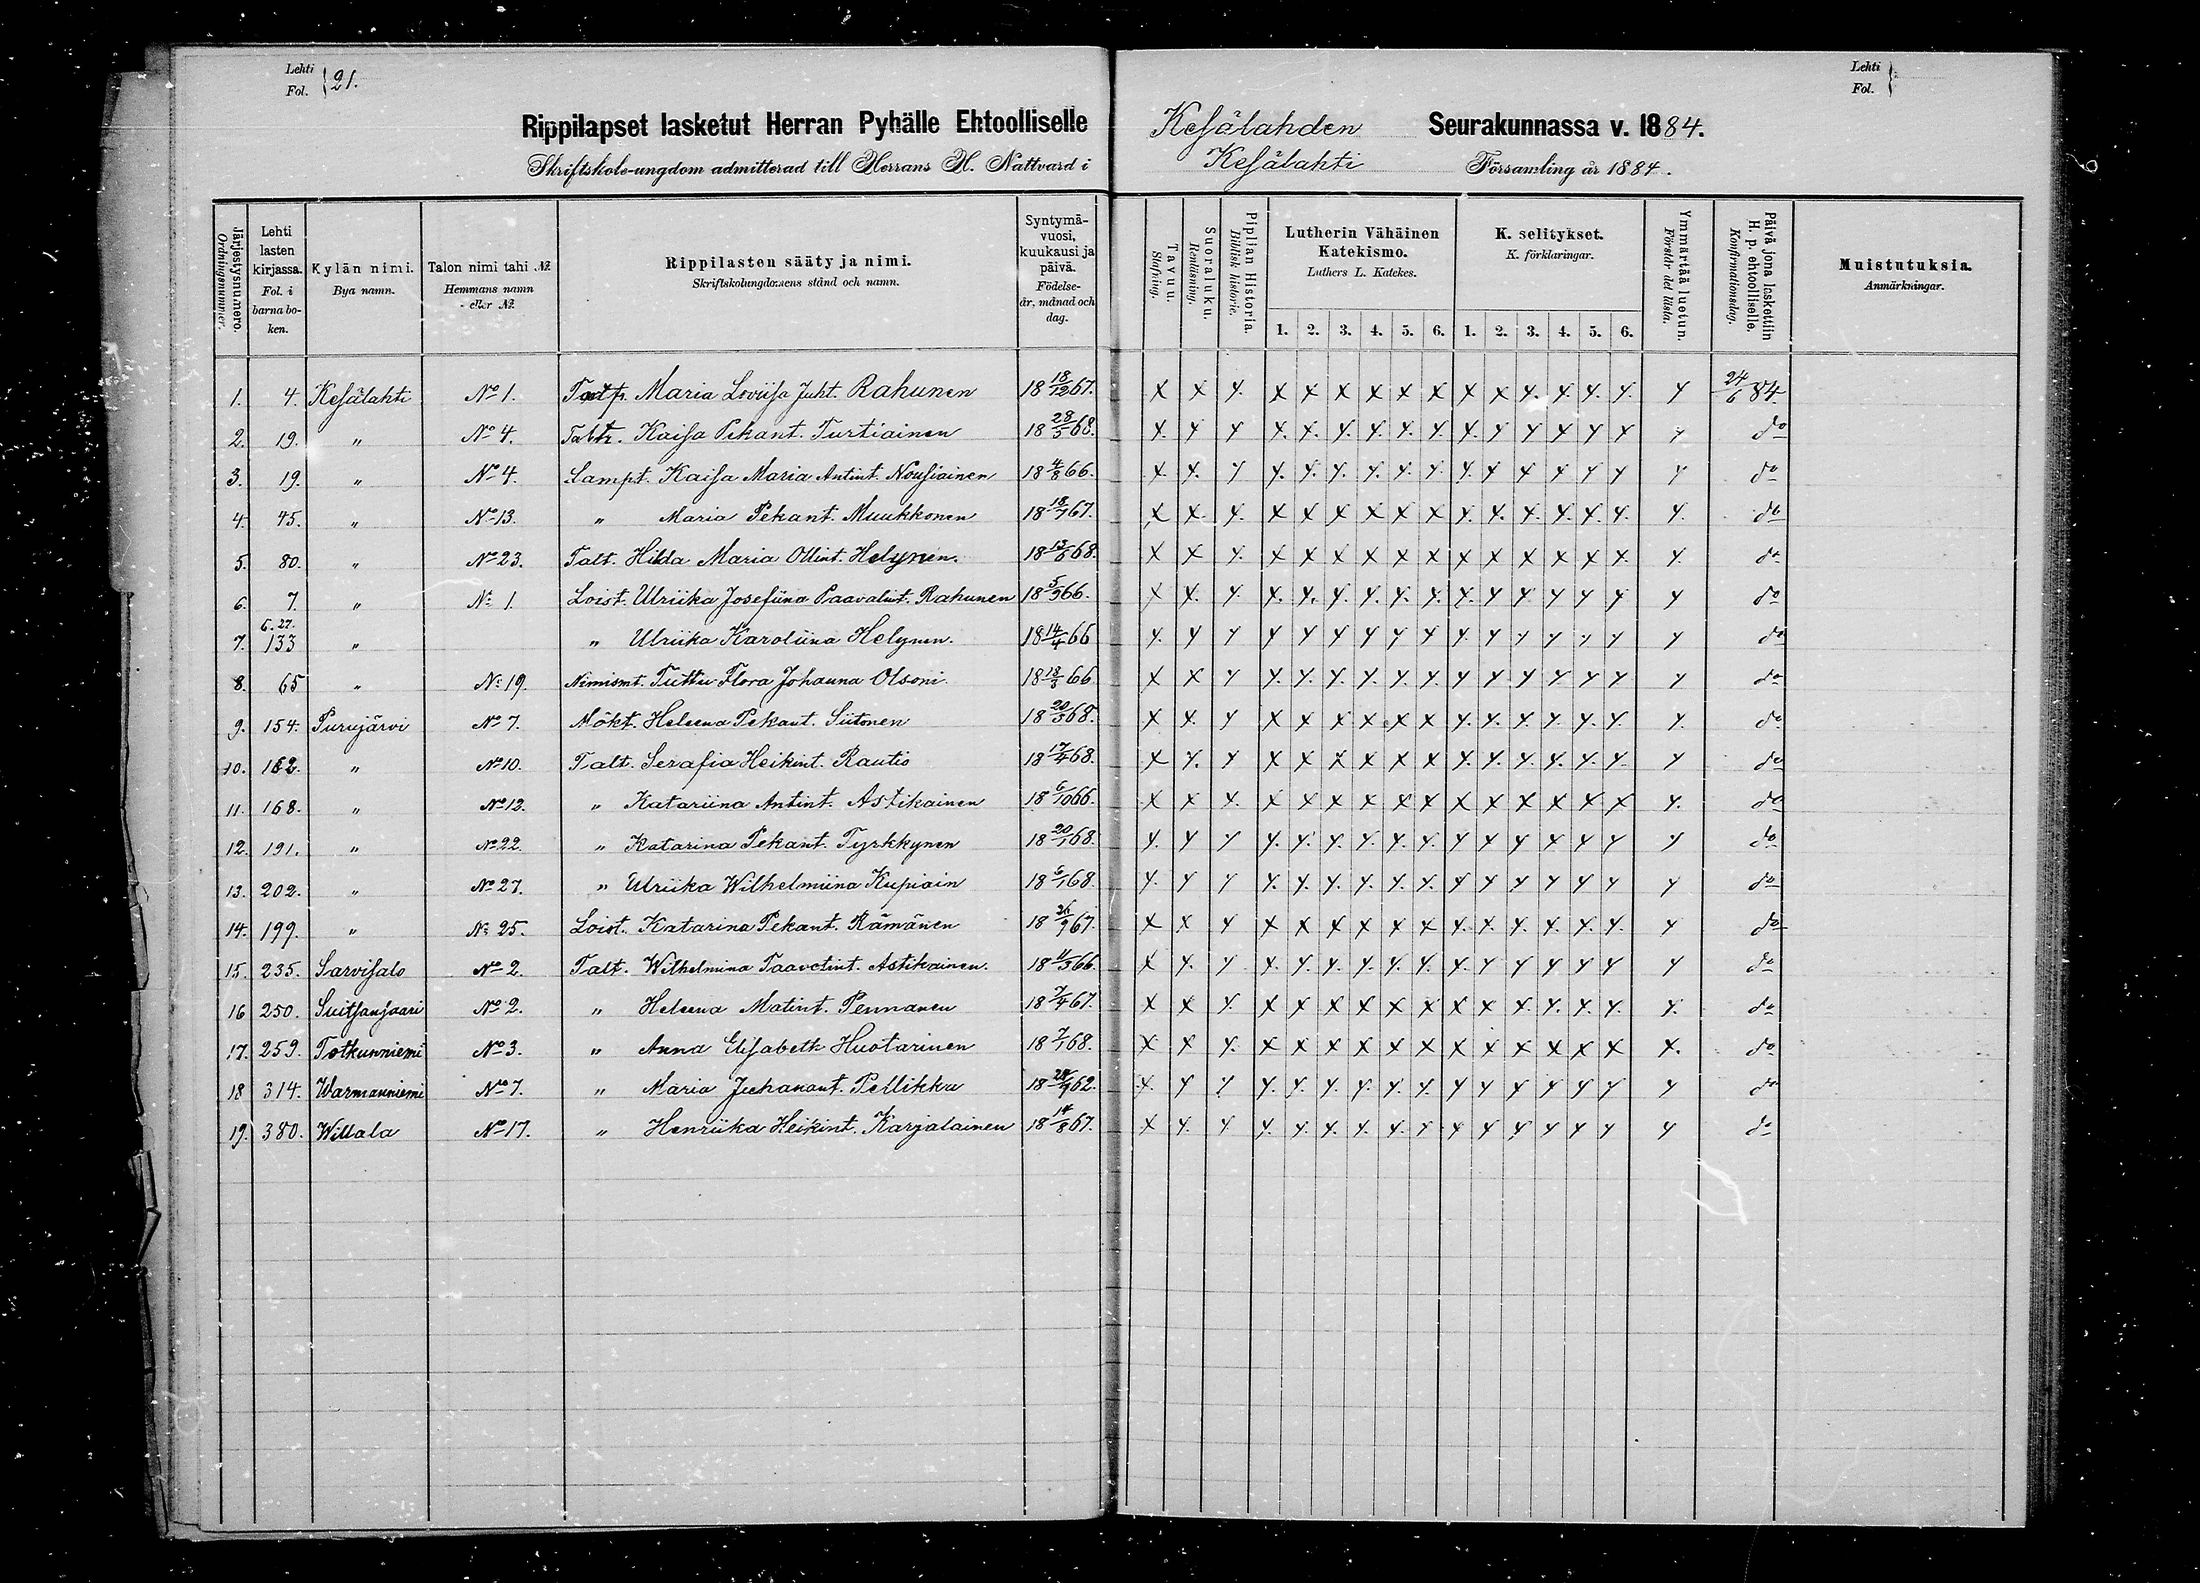 Lehti
Fol. } 21.
Rippilapset lasketut Herran Pyhälle Ehtoolliselle Kesälahden Seurakunnassa v. 1884.
Skriftskole-ungdom admitterad till Herrans H. Nattvard i Kesälahti Församling år 1884.
Lehti
Fol. }
Järjestysnumero. Ordningsnummer.
Lehti lasten kirjassa. Fol. i barnaboken.
Kylän nimi. Bya namn.
Talon nimi tahi №. Hemmans namn eller №.
Rippilasten sääty ja nimi. Skriftskolungdomens stånd och namn.
Syntymävuosi, kuukausi ja päivä. Födelseår, månad och dag.
Tavuu. Stafning.
Suoraluku. Renläsning.
Piplian Historia. Biblisk historie.
Lutherin Vähäinen Katekismo. Luthers L. Katekes. 1. 2. 3. 4. 5. 6.
K. selitykset. K. förklaringar. 1. 2. 3. 4. 5. 6.
Ymmärtää luetun. Förstår det lästa.
Päivä jona laskettiin H. p. ehtoolliselle. Konfirmationsdag.
Muistutuksia. Anmärkningar.
1. 4. Kesälahti No 1. Maria Loviisa Juht. Rahunen 18 18/12 67. 24/6 84
2. 19. " No 4. Kaisa Pekant. Turtiainen 18 28/5 68. do
3. 19. " No 4. Lampt. Kaisa Maria Antint. Nousiainen 18 4/8 66. do
4. 45. " No 13. " Maria Pekant. Muukkonen 18 18/7 67. do
5. 80. " No 23. Talt. Hilda Maria Ollint. Helynen. 18 13/6 68. do
6. 7. " No 1. Loist. Ulriika Josefiina Paavalint. Rahunen 18 5/9 66. do
7. 6. 27. 133 " " Ulriika Karoliina Helynen. 18 14/4 66 do
8. 65 " No 19. Nimismt. Tuttu Flora Johanna Olsoni 18 18/3 66 do
9. 154. Purujärvi No 7. Mökt. Heleena Pekant. Siitonen 18 20/3 68. do
10. 162. " No 10. Talt. Serafia Heikint. Rautio 18 17/4 68. do
11. 168. " No 12. " Katariina Antint. Astikainen 18 6/10 66. do
12. 191. " No 22. " Katarina Pekant. Tyrkkynen 18 20/1 68. do
13. 202. " No 27. " Ulriika Wilhelmiina Kupiain 18 6/1 68. do
14. 199. " No 25. Loist. Katarina Pekant. Rämänen 18 26/9 67. do
15. 235. Sarvisalo No 2. Talt. Wilhelmina Taavetint. Astikainen. 18 11/3 66. do
16 250. Suitsansaari No 2. " Heleena Matint. Pennanen 18 7/4 67. do
17. 259. Totkunniemi No 3. " Anna Elisabeth Huotarinen 18 7/1 68. do
18 314. Warmanniemi No 7. " Maria Juhanant. Pellikka 18 62. do
19. 380. Willala No 17. " Henriika Heikint. Karjalainen 18 14/8 67. do